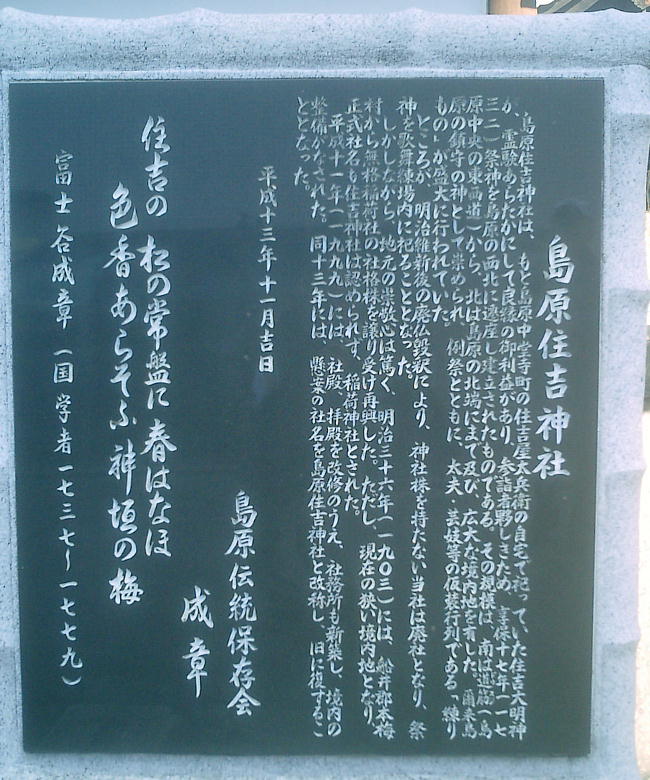 島原住吉神社
島原住吉神社は、もと島原中堂寺町の住吉屋太兵衛の自宅で祀っていた住吉大明神
が、霊験あらたかにして良縁の御利益があり、参詣者夥しきため、享保十七年（一七
三二）祭神を島原の西北に遷座し建立されたものである。その規模は、南は道筋（島
原中央の東西道）から、北は島原の北端にまで及び、広大な境内地を有した。爾来島
原の鎮守の神として崇められ、例祭とともに、太夫・芸妓等の仮装行列である「練り
もの」が盛大に行われていた。
ところが、明治維新後の廃仏毀釈により、神社株を持たない当社は廃社となり、祭
神を歌舞練場内に祀ることとなった。
しかしながら、地元の崇敬心は篤く、明治三十六年（一九〇三）には、船井郡本梅
村から無格稲荷社の社格株を譲り受け再興した。ただし、現在の狭い境内地となり、
正式社名も住吉神社は認められず、稲荷神社とされた。
平成十一年（一九九九）には、社殿、拝殿を改修のうえ、社務所も新築し、境内の
整備がなされた。同十三年には、懸案の社名を島原住吉神社と改称し、旧に復するこ
ととなった。
平成十三年十一月吉日
島原伝統保存会
成章
住吉の 松の常盤に 春はなほ
色香あらそふ 神垣の梅
富士谷成章（国学者一七三七〜一七七九）